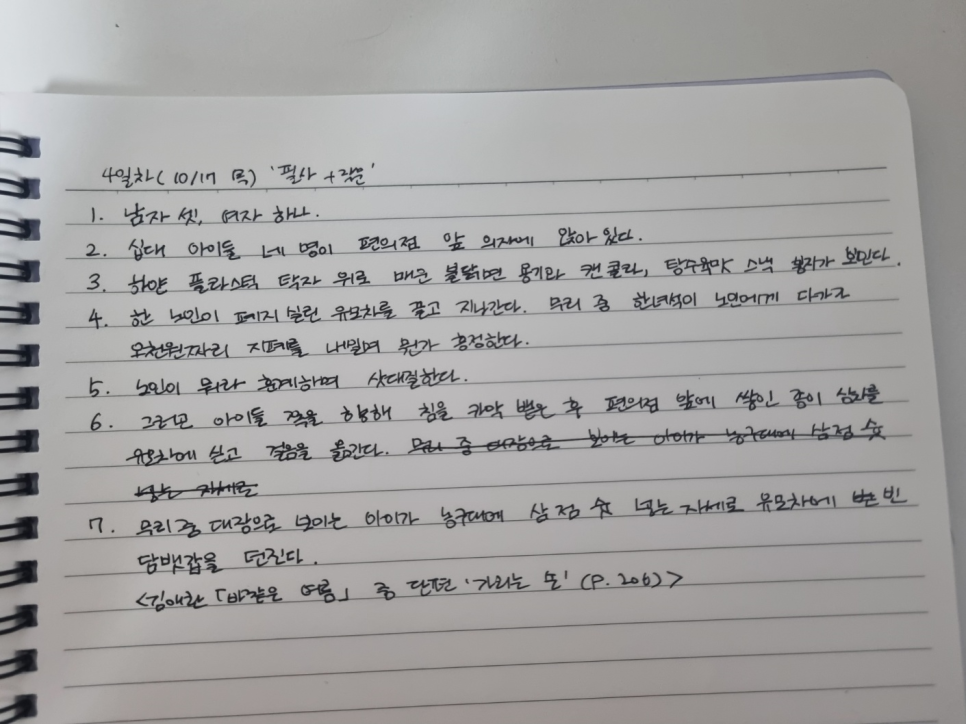 4일차( 10/17 목) '필사 + 작문'
1. 남자 셋, 여자 하나.
2. 십대 아이들 네 명이 편의점 앞 의자에 앉아 있다.
3. 하얀 플라스틱 탁자 위로 매운 불닭면 용기와 캔 콜라, 탕수육맛 스낵 봉지가 보인다.
4. 한 노인이 폐지 실린 유모차를 끌고 지나간다. 무리 중 한 녀석이 노인에게 다가가
오천원짜리 지폐를 내밀며 뭔가 흥정한다.
5. 노인이 뭐라 훈계하며 삿대질한다.
6. 그러곤 아이들 쪽을 향해 침을 카악 뱉은 후 편의점 앞에 쌓인 종이 상자를
유모차에 싣고 걸음을 옮긴다. 무리 중 대장으로 보이는 아이가 농구대에 삼점 슛
넣는 자세로
7. 무리 중 대장으로 보이는 아이가 농구대에 삼점 슛 넣는 자세로 유모차에 빈
담뱃갑을 던진다.
<김애란 「바깥은 여름」 중 단편 '가리는 손' (P. 206)>